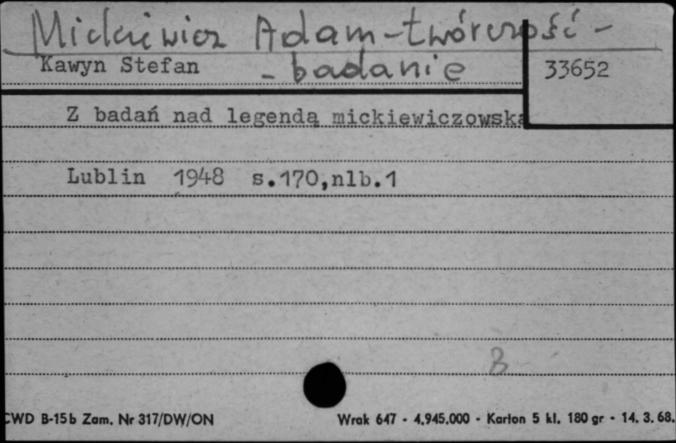 Mickiewicz Adam - twórczość -
- badanie
Kawyn Stefan
33652
Z badań nad legendą mickiewiczowską
Lublin 1948 s.170,nlb.1
B
CWD B-15b Zam. Nr 317/DW/ON
Wrak 647 - 4.945.000 - Karton 5 kl. 180 gr - 14. 3. 68.